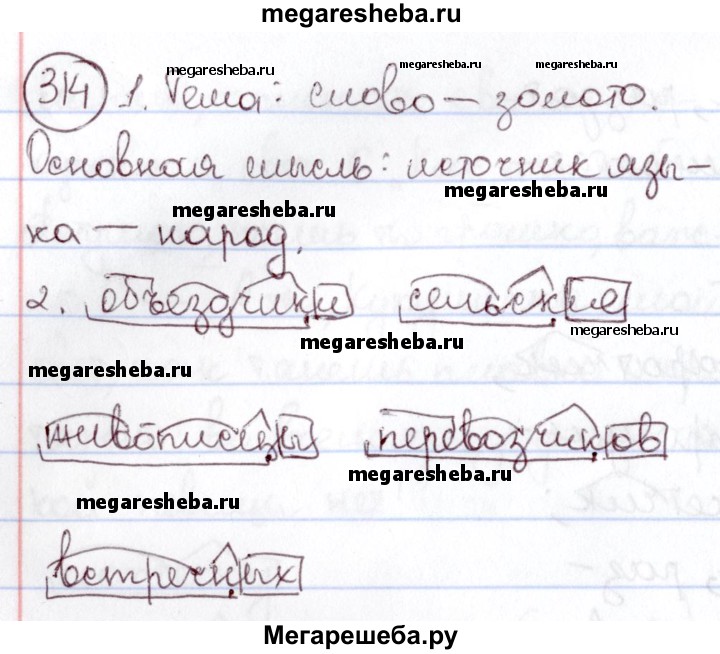 megaresheba.ru
314 1. Тема: слово — золото.
megaresheba.ru megaresheba.ru megaresheba.ru
Основная мысль: источник язы-
megaresheba.ru
megaresheba.ru
ка — народ.
2. объездчики сельские
megaresheba.ru
megaresheba.ru
живописцы перевозчиков
megaresheba.ru
megaresheba.ru
встречных
Мегарешеба.ру